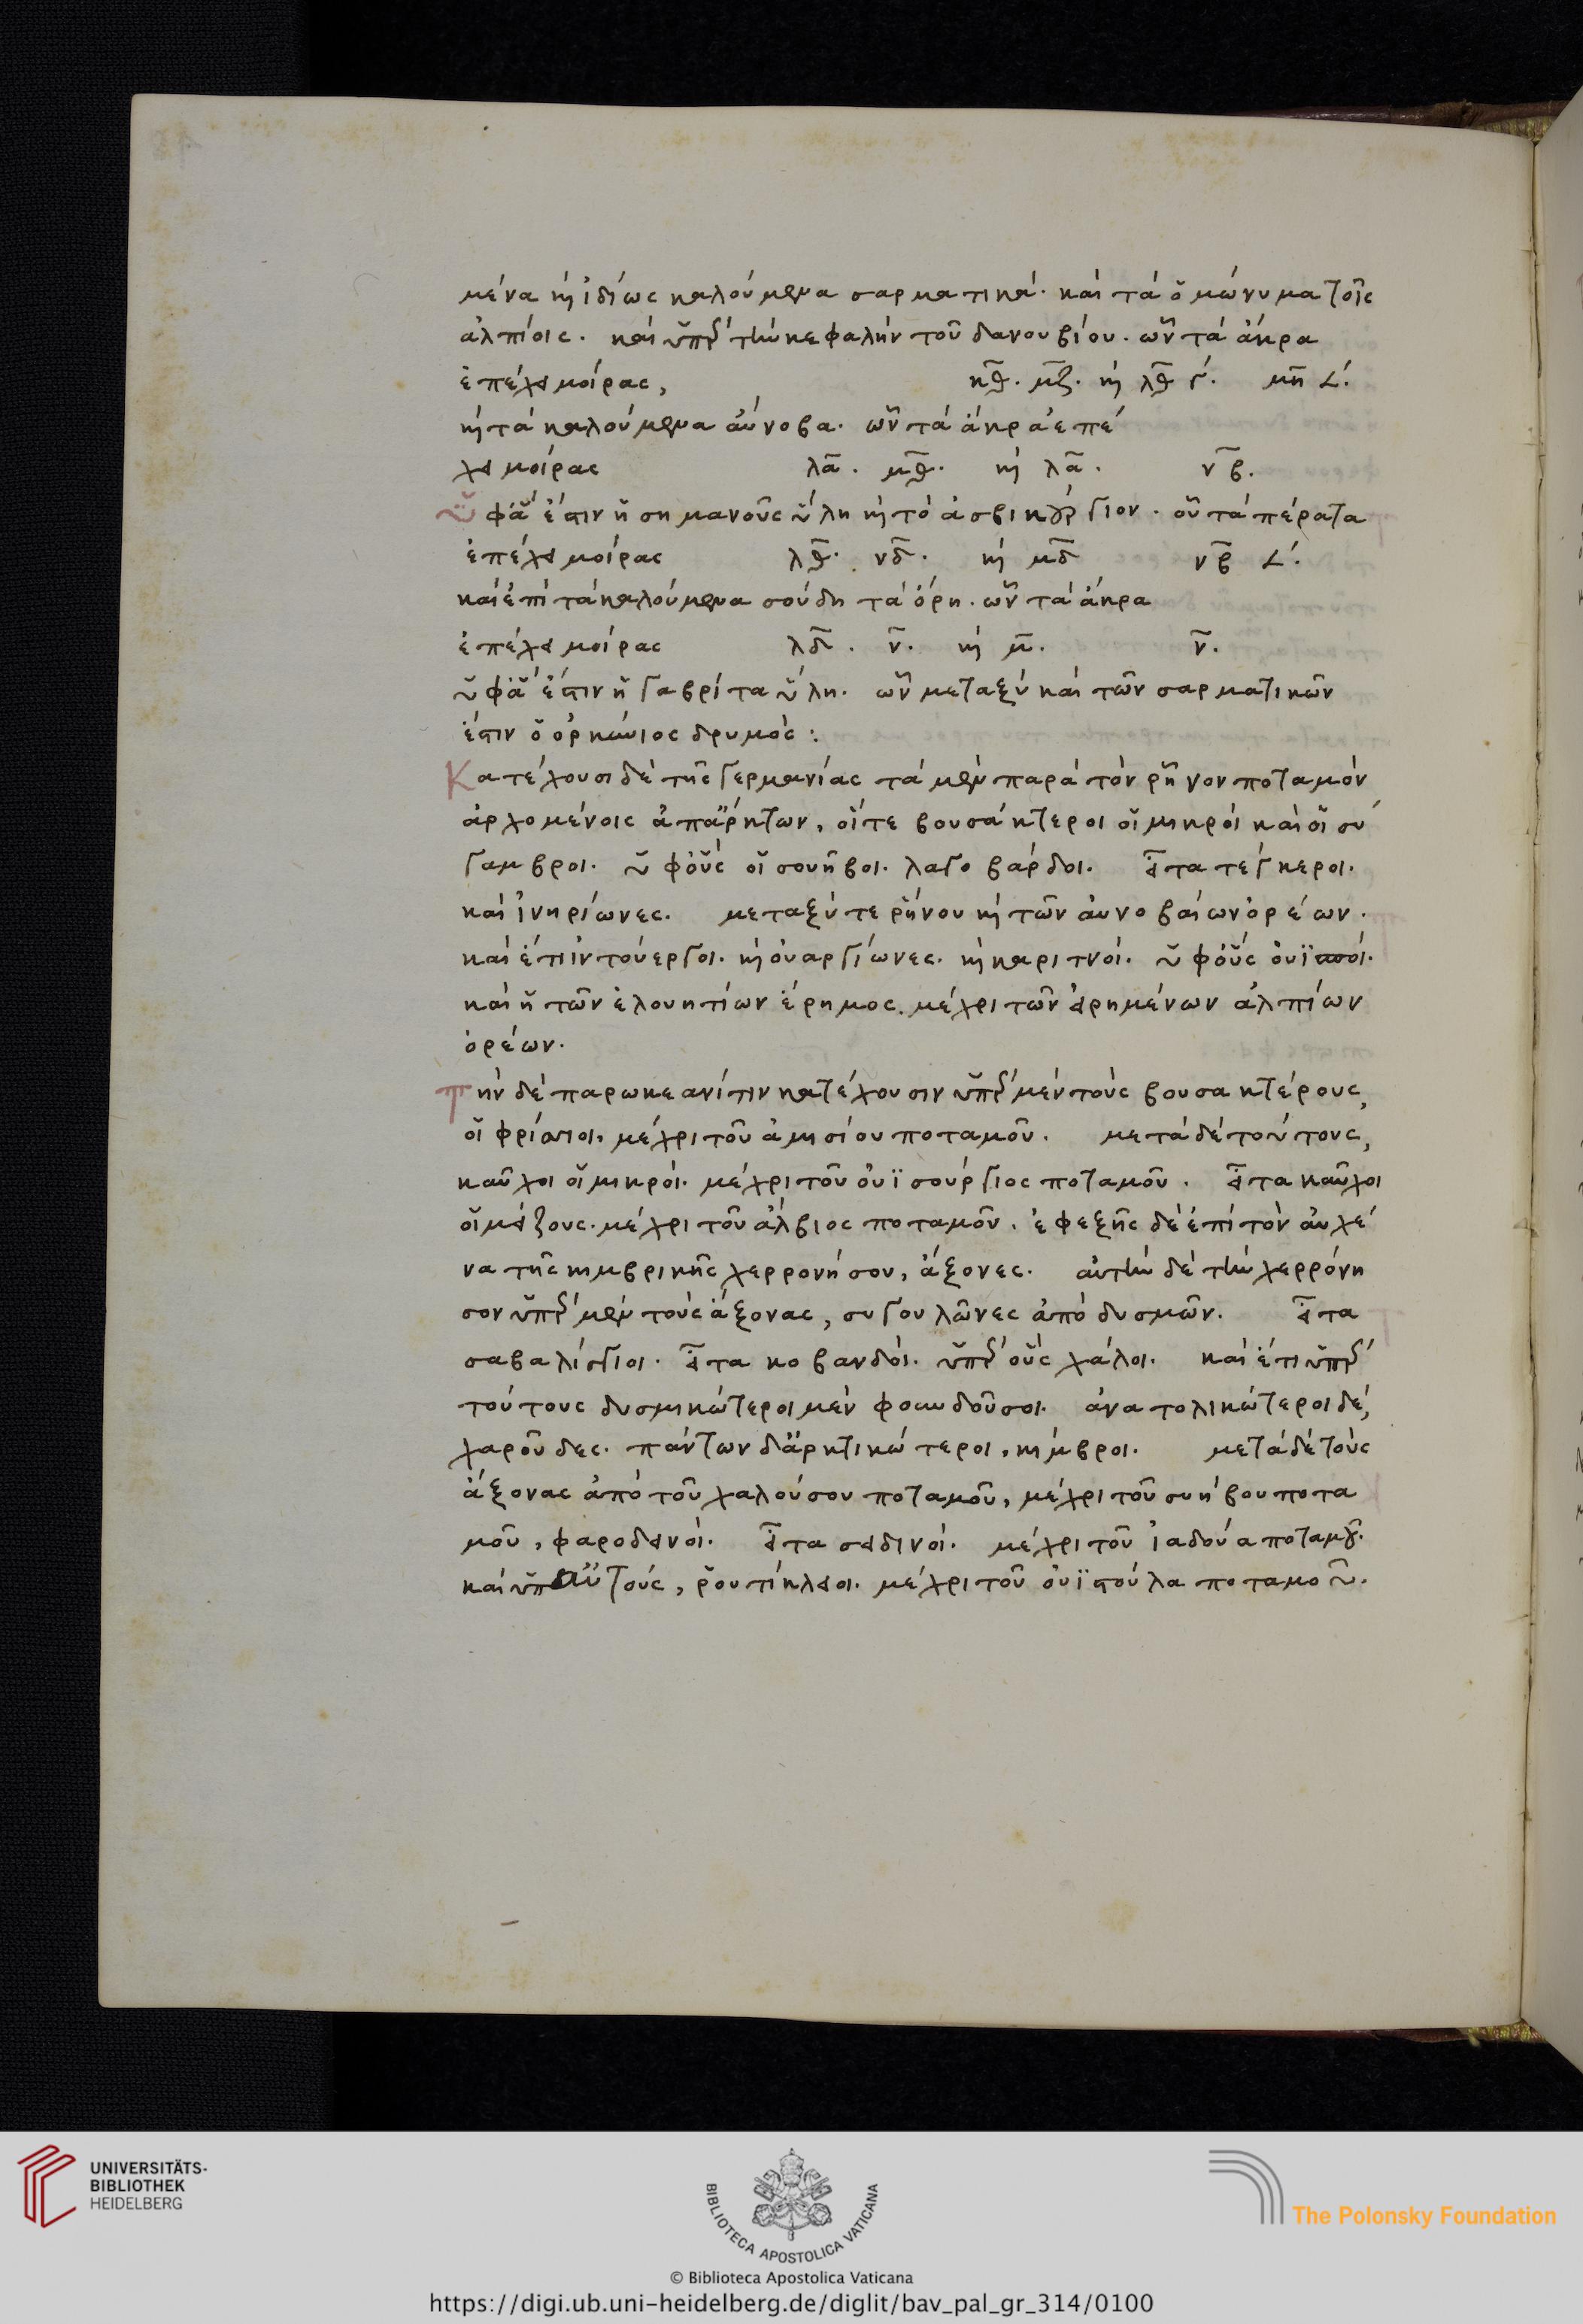 μένα κ̀ ἰδίως καλούμενα σαρματικά· καὶ τὰ ὁμώνυμα τοῖς
ἀλπίοις· καὶ ὑπὲρ τὴν κεφαλὴν τοῦ δανουβίου· ὧν τὰ ἄκρα
ἐπέχει μοίρας, κθ· μζ· κ̀ λθ γ· μη 𐅵·
κ̀ τὰ καλούμενα ἄυνοβα· ὧν τὰ ἄκρα ἐπέ
χει μοίρας λα· μθ· κ̀ λα· νβ·
ὑφ' ἅ ἐστιν ἡ σημανοῦς ὕλη κ̀ τὸ ἀσβικούργιον· οὗ τὰ πέρατα
ἐπέχει μοίρας λθ· νδ· κ̀ μδ νβ 𐅵·
καὶ ἐπὶ τὰ καλούμενα σούδητα ὄρη· ὧν τὰ ἄκρα
ἐπέχει μοίρας λδ· ν· κ̀ μ· ν·
ὑφ' ἅ ἐστιν ἡ γαβρίτα ὕλη· ὧν μεταξὺ καὶ τῶν σαρματικῶν
ἐστιν ὁ ὀρκύνιος δρυμός:
Κατέχουσι δὲ τῆς γερμανίας τὰ μὲν παρὰ τὸν ῥῆνον ποταμὸν
ἀρχομένοις ἀπ' ἄρκτων, οἵ τε βουσάκτεροι οἱ μικροὶ καὶ οἱ σύ
γαμβροι· ὑφ' οὓς οἱ σουῆβοι· λαγοβάρδοι· εἶτα τέγκεροι·
καὶ ἰνκρίωνες· μεταξύ τε ῥήνου κ̀ τῶν ἀυνοβαίων ὀρέων·
καὶ ἔτι ἰντούεργοι· κ̀ ὀυαργίωνες· κ̀ καριτνοί· ὑφ' οὓς ὀυϊσποί·
καὶ ἡ τῶν ἑλουητίων ἔρημος· μέχρι τῶν εἰρημένων ἀλπίων
ὀρέων·
Τὴν δὲ παρωκεανῖτιν κατέχουσιν ὑπὲρ μὲν τοὺς βουσακτέρους,
οἱ φρίσσιοι· μέχρι τοῦ ἀμησίου ποταμοῦ· μετὰ δὲ τούτους,
καῦχοι οἱ μικροί· μέχρι τοῦ ὀυϊσούργιος ποταμοῦ· εἶτα καῦχοι
οἱ μείζους· μέχρι τοῦ ἄλβιος ποταμοῦ· ἐφεξῆς δὲ ἐπὶ τὸν ἀυχέ
να τῆς κιμβρικῆς χερρονήσου, ἄξονες· αὐτὴν δὲ τὴν χερρόνη
σον ὑπὲρ μὲν τοὺς ἄξονας, συγουλῶνες ἀπὸ δυσμῶν· εἶτα
σαβαλίγγιοι· εἶτα κοβανδοί· ὑπὲρ οὓς χάλοι· καὶ ἔτι ὑπὲρ
τούτους δυσμικώτεροι μὲν φουνδοῦσοι· ἀνατολικώτεροι δέ,
χαροῦδες· πάντων δ' ἀρκτικώτεροι, κίμβροι· μετὰ δὲ τοὺς
ἄξονας ἀπὸ τοῦ χαλούσου ποταμοῦ, μέχρι τοῦ συήβου ποτα
μοῦ, φαροδεινοί· εἶτα σειδινοί· μέχρι τοῦ ἰαδούα ποταμοῦ·
καὶ ὑπ' αὐτούς, ῥουτίκλειοι· μέχρι τοῦ ὀυϊστούλα ποταμοῦ·
UNIVERSITÄTS-
BIBLIOTHEK
HEIDELBERG
BIBLIOTECA APOSTOLICA VATICANA
The Polonsky Foundation
© Biblioteca Apostolica Vaticana
https://digi.ub.uni-heidelberg.de/diglit/bav_pal_gr_314/0100